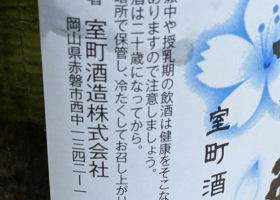 娠中や授乳期の飲酒は健康をそこな
ありますので注意しましょう。
酒は二十歳になってから。
暗所で保管し、冷たくしてお召し上が
者 室町酒造株式会社
岡山県赤磐市西中一三四二ー一
室町酒